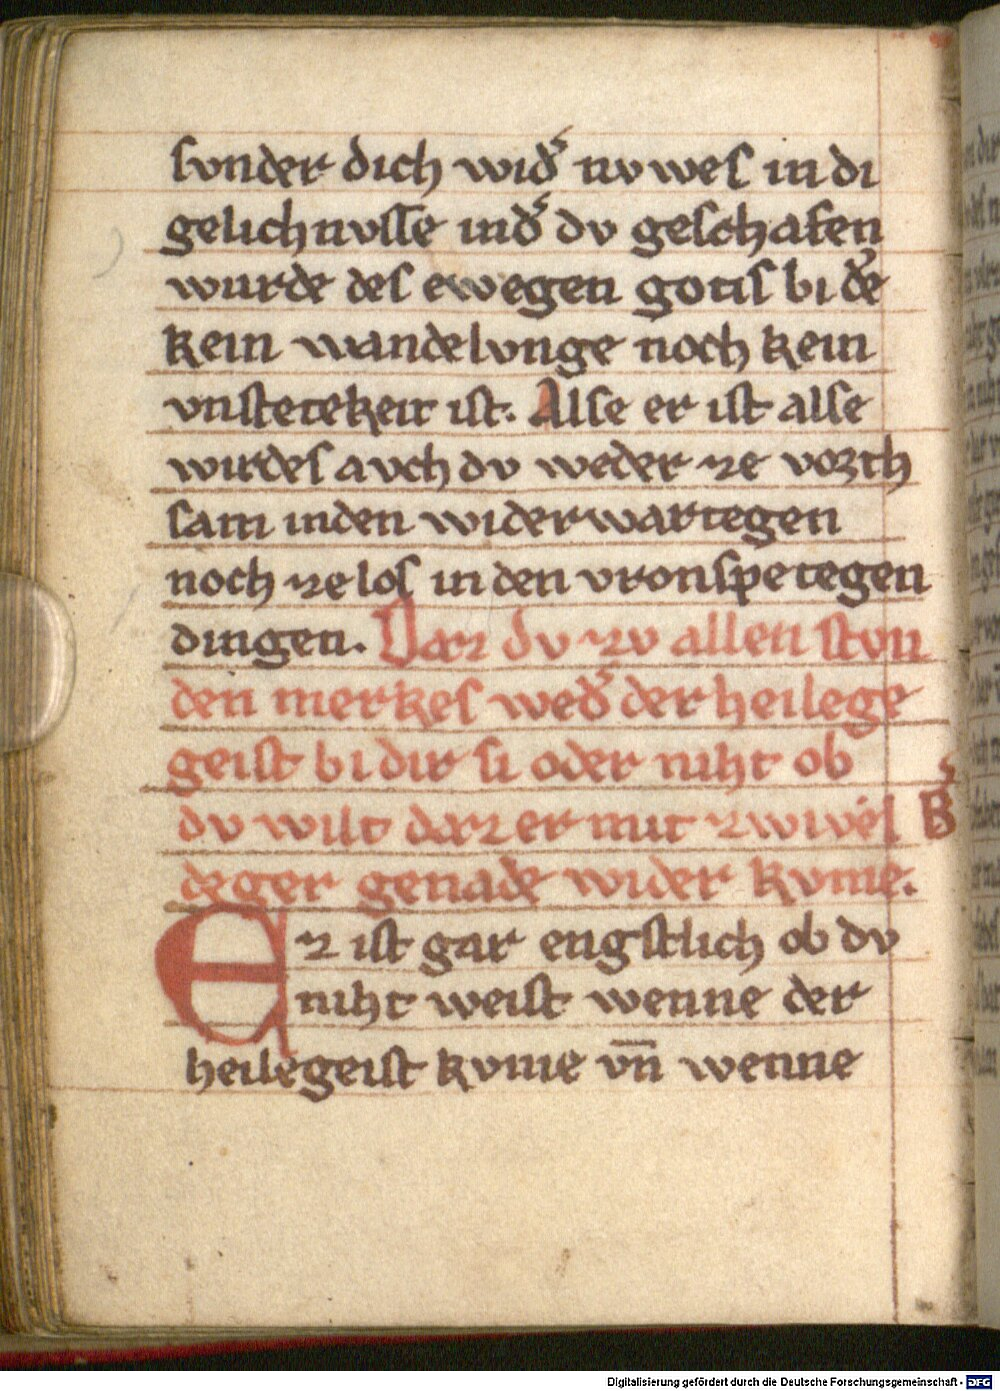 sunder dich wid͛ nv wes in di
gelichnvsse ind͛ dv geschafen
wurde des ewegen gotis bi de͛
kein wandelvnge noch kein
vnstetekeit ist. Alse er ist alse
wirdes avch dv weder ze vorch
sam inden widerwartegen
noch ze los in den vronspetegen
dingen. Daz dv zv allen stvn
den merkes wed͛ der heilege
geist bi dir si oder niht ob
dv wilt daz er mit zwivel B͛
deger genade wider kvme.
Ez ist gar engstlich ob dv
niht weist wenne der
heilegeist kvme vn̄ wenne
Digitalisierung gefördert durch die Deutsche Forschungsgemeinschaft - DFG